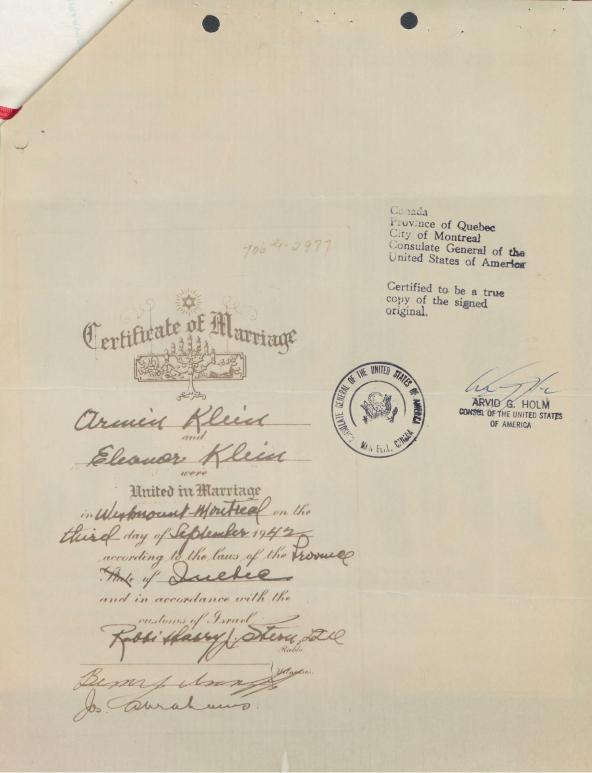 Canada
Province of Quebec
City of Montreal
Consulate General of the
United States of America
Certified to be a true
copy of the signed
original.
706 2977
Certificate of Marriage
CONSULATE GENERAL OF THE UNITED STATES OF AMERICA
MONTREAL, CANADA
ARVID G. HOLM
CONSUL OF THE UNITED STATES
OF AMERICA
Armin Klein
and
Eleanor Klein
were
United in Marriage
in Westmount-Montreal on the
third day of September 1942
according to the laws of the Province
State of Quebec
and in accordance with the
customs of Israel
Rabbi Harry J. Stern,
Rabbi
Witnesses.
Jos. Abrahams.